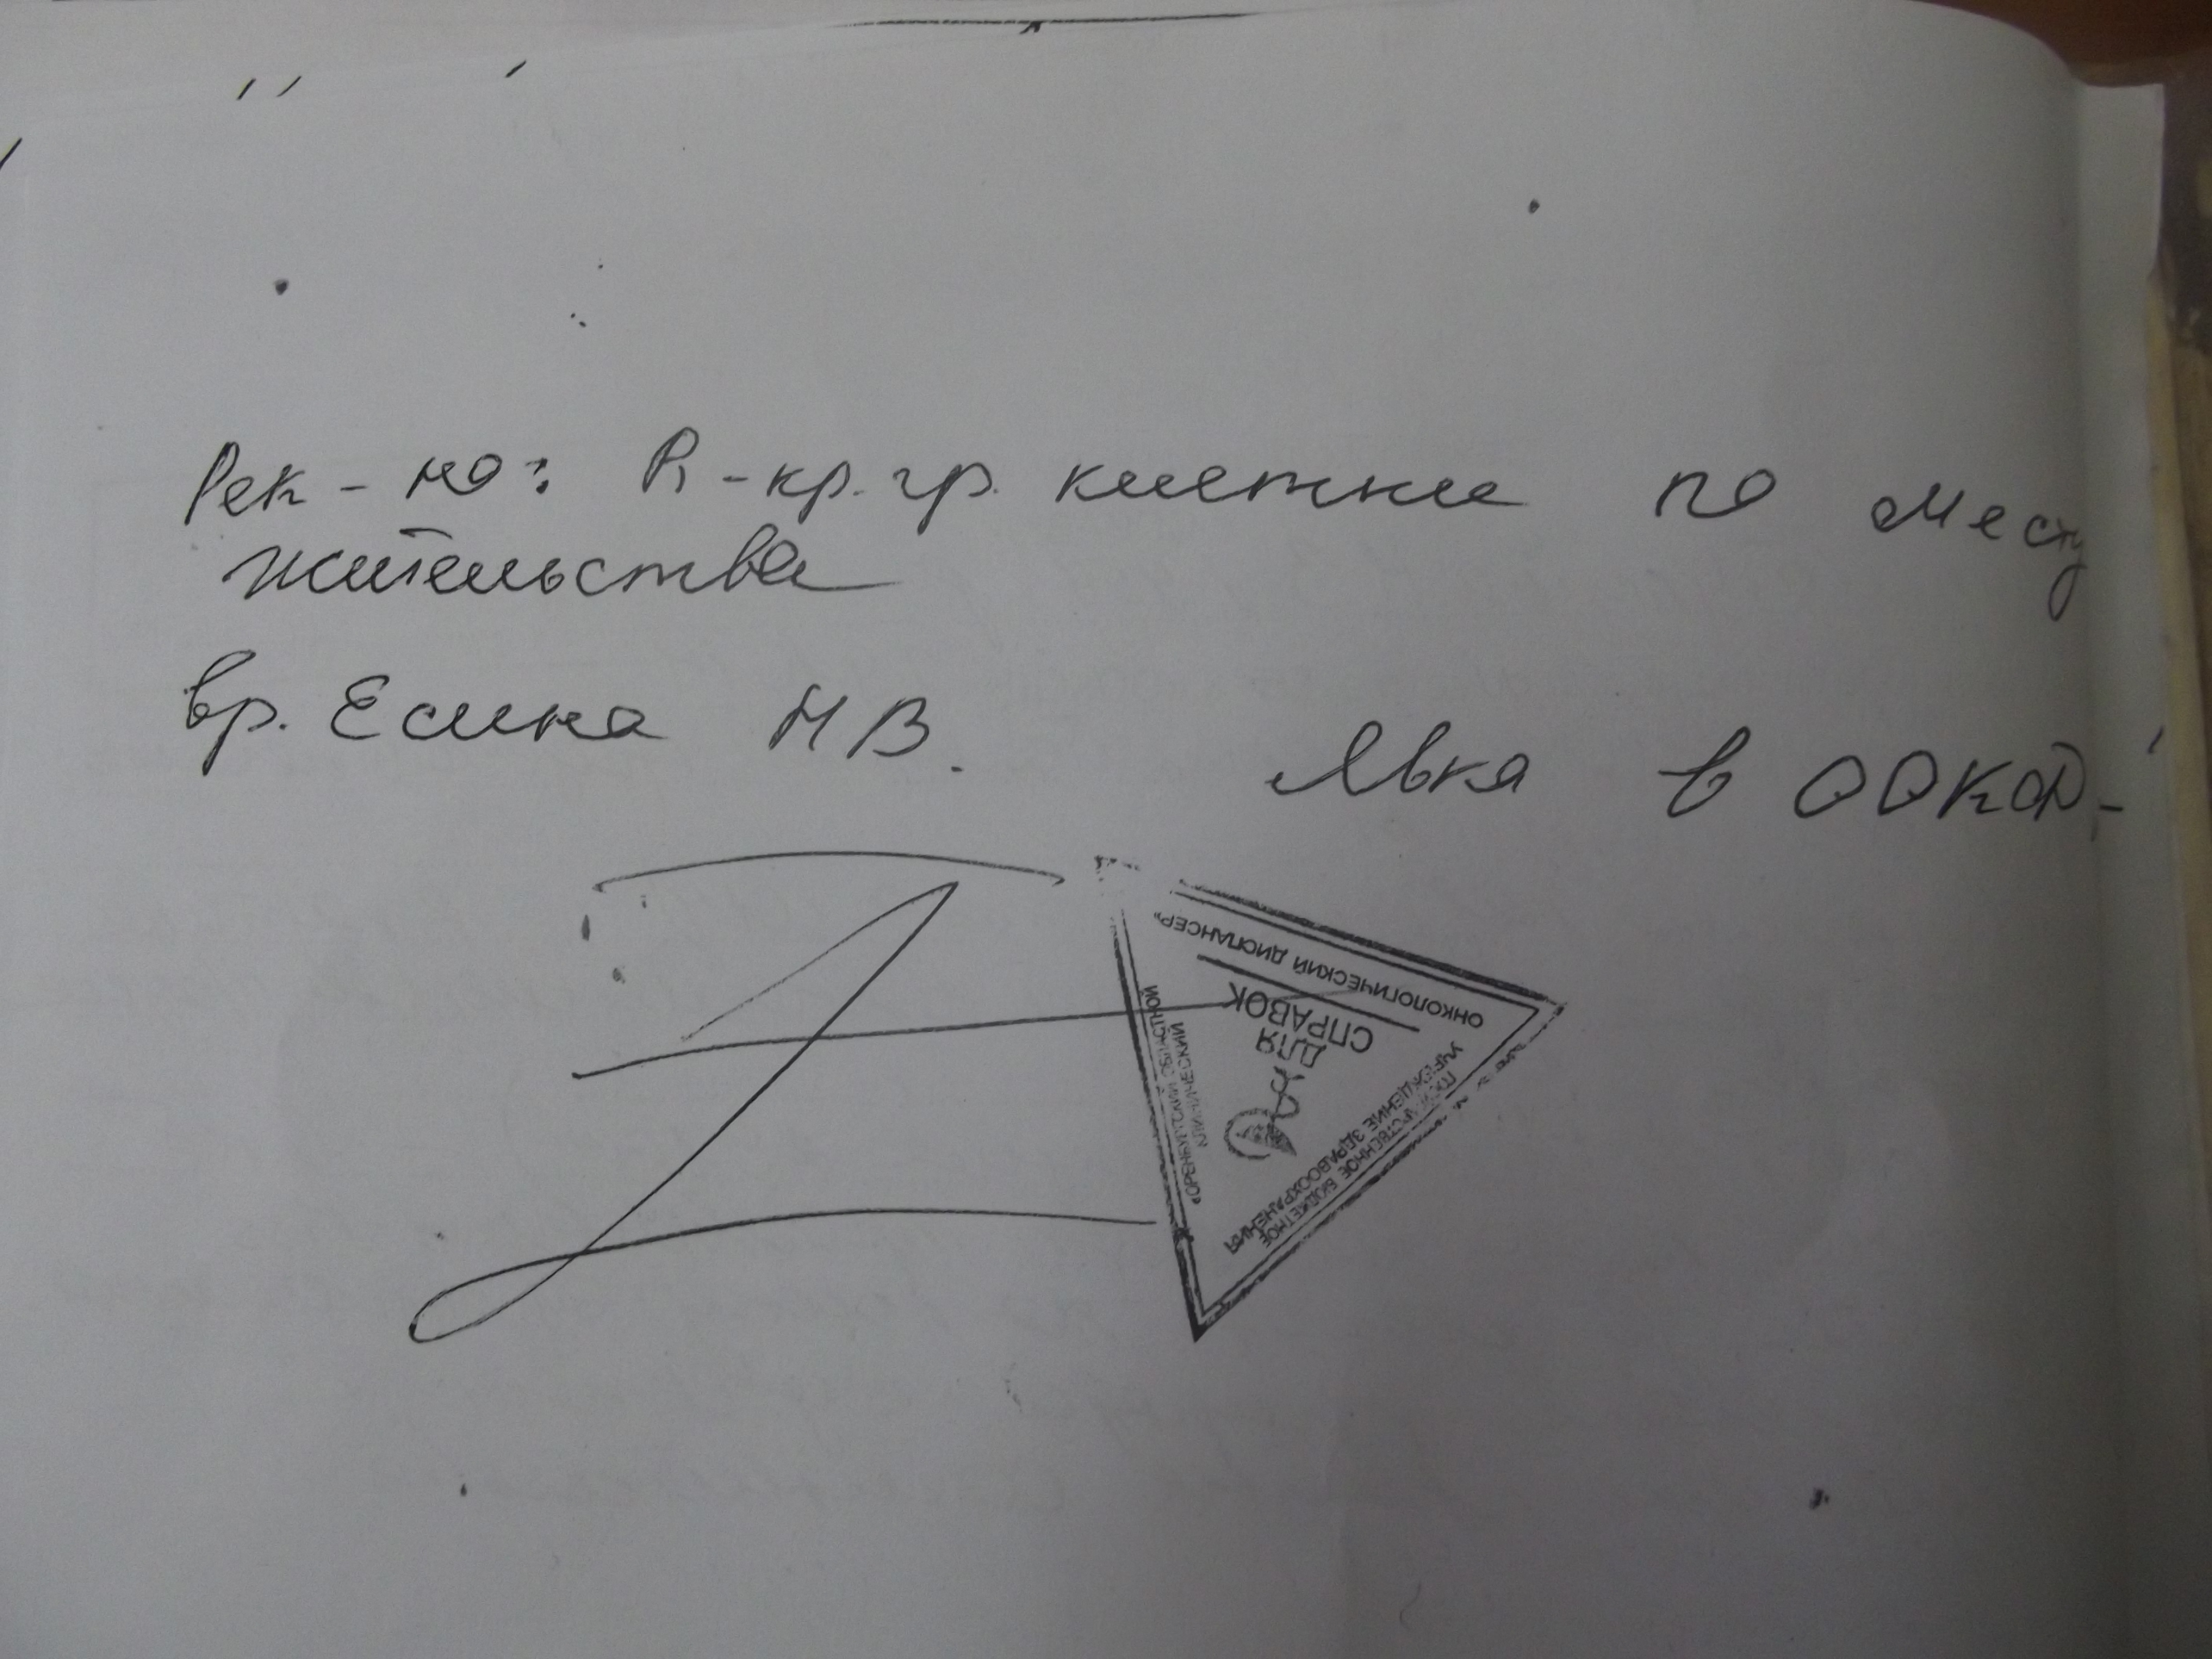 Рек-но: R-кр. гр. клетки по месту
жительства
вр. Есина НВ. Явка в ООКОД-
«ОРЕНБУРГСКИЙ ОБЛАСТНОЙ
КЛИНИЧЕСКИЙ
ОНКОЛОГИЧЕСКИЙ ДИСПАНСЕР»
ДЛЯ
СПРАВОК
ГОСУДАРСТВЕННОЕ БЮДЖЕТНОЕ
УЧРЕЖДЕНИЕ ЗДРАВООХРАНЕНИЯ